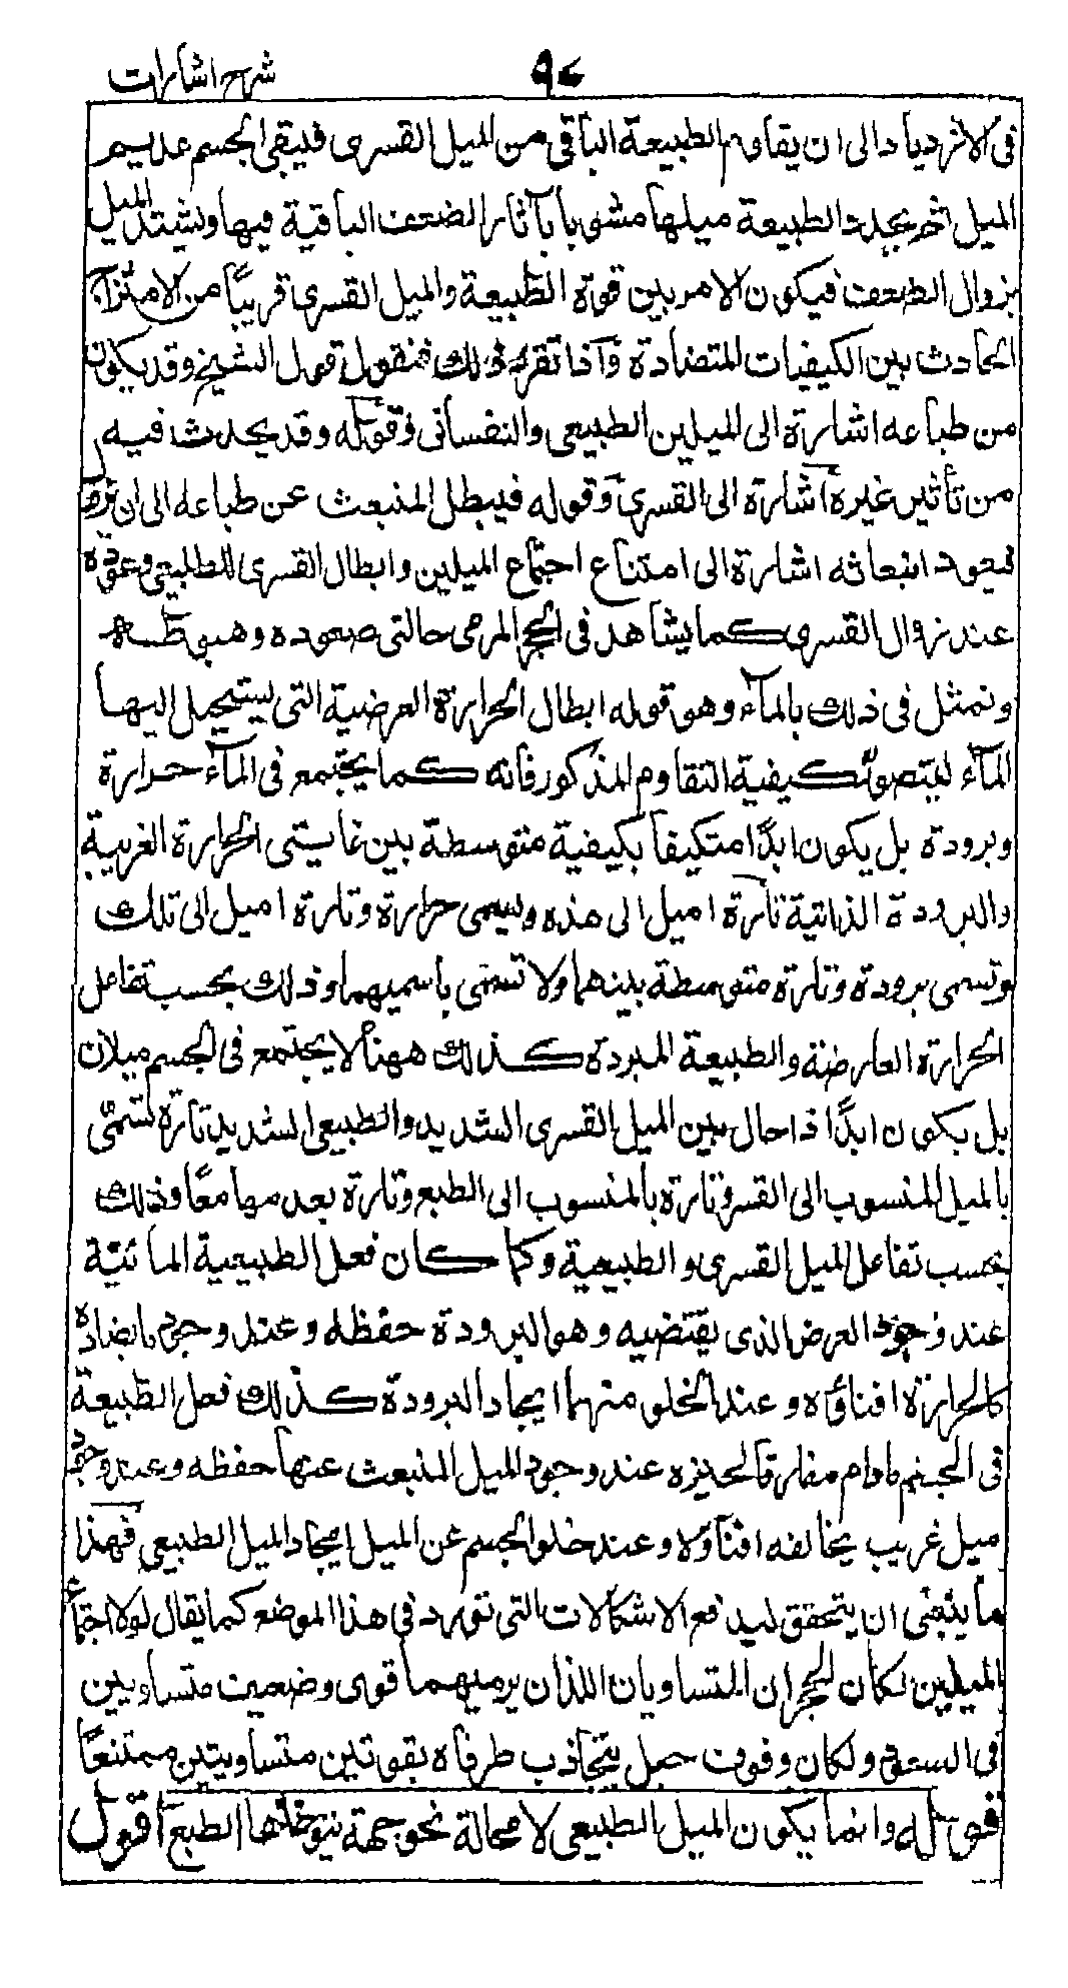 شرح اشارات
٩٠
فى الازدياد الى ان يقاوم الطبيعة الباقى من الميل القسرى فيبقى الجسم عديم
الميل ثم يجدد الطبيعة ميلها مشوبا بآثار الضعف الباقية فيها ويشتد الميل
بزوال الضعف فيكون الامر بين قوة الطبيعة والميل القسرى قريبًا من الامتزاج
الحادث بين الكيفيات المتضادة وآذا تقرر ذلك فنقول قول الشيخ وقد يكون
من طباعه اشارة الى الميلين الطبيعى والنفسانى وقوله وقد يحدث فيه
من تأثير غيره اشارة الى القسرى وقوله فيبطل المنبعث عن طباعه الى ان يزول
فيعود انبعاثه اشارة الى امتناع اجتماع الميلين وابطال القسرى للطبيعى وعوده
عند زوال القسرى كما يشاهد فى الحجر المرمى حالتى صعوده وهبوطه
وتمثل فى ذلك بالمآء وهو قوله ابطال الحرارة العرضية التى يستحيل اليها
المآء ليتصور كيفية التقاوم المذكور فانه كما يجتمع فى المآء حرارة
وبرودة بل يكون ابدًا متكيفا بكيفية متوسطة بين غايتى الحرارة الغريبة
والبرودة الذاتية تارة اميل الى هذه وتسمى حرارة وتارة اميل الى تلك
وتسمى برودة وتارة متوسطة بينهما ولا تسمى باسميهما وذلك بحسب تفاعل
الحرارة العارضة والطبيعة المبردة كذلك ههنا لا يجتمع فى الجسم ميلان
بل يكون ابدًا ذا حال بين الميل القسرى الشديد والطبيعى الشديد تارة تسمى
بالميل المنسوب الى القسر وتارة بالمنسوب الى الطبع وتارة بعدمها معًا وذلك
بحسب تفاعل الميل القسرى والطبيعية وكما كان فعل الطبيعية المائيّة
عند وجود العرض الذى يقتضيه وهو البرودة حفظه وعند وجود ما يضاده
كالحرارة افناؤه وعند الخلو منهما ايجاد البرودة كذلك فعل الطبيعة
فى الجسم مادام مفارقا لحيزه عند وجود الميل المنبعث عنها حفظه وعند وجود
ميل غريب يخالفه افناؤه وعند خلو الجسم عن الميل ايجاد الميل الطبيعى فهذا
ما ينبغى ان يتحقق ليدفع الاشكالات التى تورد فى هذا الموضع كما يقال لولا اجتماع
الميلين لكان الحجران المتساويان اللذان يرميهما قوى وضعيف متساويين
فى السعة ولكان وقوف حبل يتجاذب طرفاه بقوتين متساويتين ممتنعًا
قوله وانما يكون الميل الطبيعى لا محالة نحو جهة يتوخاها الطبع اقول